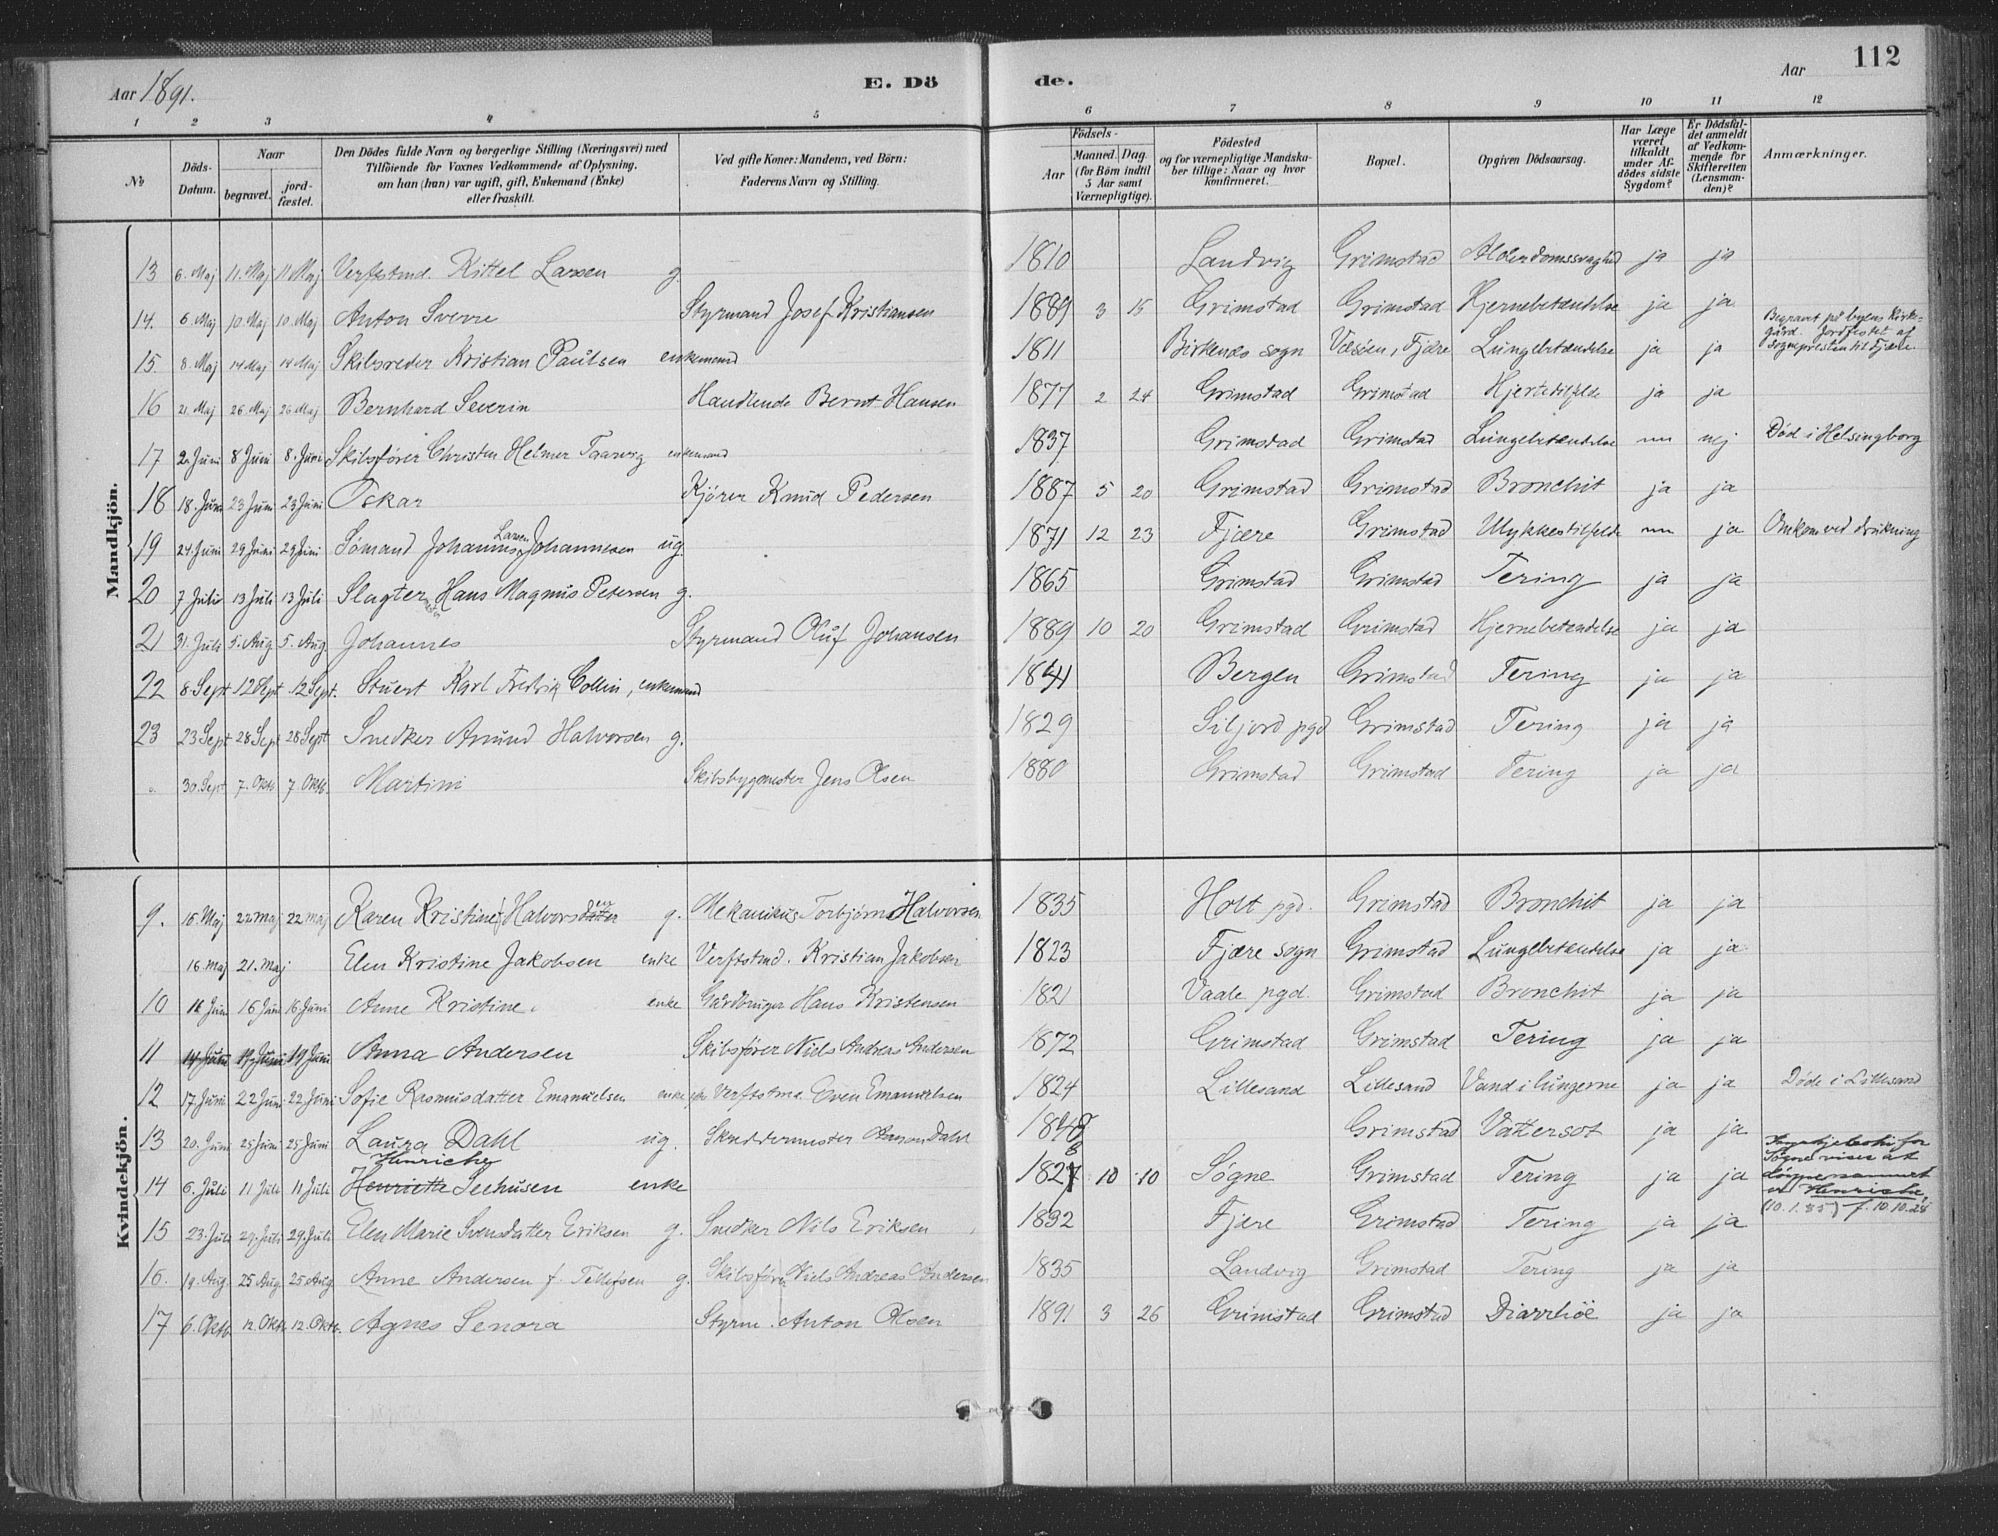 Aar 1891.
E. Dö
de.
Aar
112
1 2 3 4 5 6 7 8 9 10 11 12
No
Döds-Datum.
Naar
begravet.
jord-fæstet.
Den Dödes fulde Navn og borgerlige Stilling (Næringsvei) med
Tilföiende for Voxnes Vedkommende af Oplysning,
om han (hun) var ugift, gift, Enkemand (Enke)
eller fraskilt.
Ved gifte Koner: Mandens, ved Börn:
Faderens Navn og Stilling.
Födsels-
Aar
Maaned. Dag.
(for Börn indtil
5 Aar samt
Værnepligtige).
Födested
og for værnepligtige Mandska-
ber tillige: Naar og hvor
konfirmeret.
Bopæl.
Opgiven Dödsaarsag.
Har Læge
været
tilkaldt
under Af-
dödes sidste
Sygdom?
Er Dödsfal-
det anmeldt
af Vedkom-
mende for
Skifteretten
(Lensman-
den)?
Anmærkninger.
Mandkjön.
13 6. Maj 11. Maj 11 Maj Verftstmd. Kittel Larsen g. 1810 Landvig Grimstad Alderdomssvaghed ja ja
14. 6. Maj 10 Maj 10 Maj Anton Sverre Styrmand Josef Kristiansen 1889 3 15 Grimstad Grimstad Hjernebetændelse ja ja
15. 8. Maj 14 Maj 14 Maj Skibsreder Kristian Paulsen enkemand 1811 Birkenes sogn Vessøen, Fjære Lungebetændelse ja ja Begravet på byens Kirke-
gård. Jordfæstet af
sognepresten til Fjære.
16 21. Maj 26 Maj 26 Maj Bernhard Severin Handlende Bernt Hansen 1877 2 24 Grimstad Grimstad Hjertetilfelde ja ja
17 2. Juni 8 Juni 8. Juni Skibsfører Christen Helmer Taarvig enkemand 1837 Grimstad Grimstad Lungebetændelse nei Død i Helsingborg
18 18. Juni 23 Juni 23 Juni Oskar Kjører Knud Pedersen 1887 5 20 Grimstad Grimstad Bronchit ja ja
19 24. Juni 29 Juni 29 Juni Sømand Johannes Larsen Johannesen ug. 1871 12 23 Fjære Grimstad Ulykkestilfelde ja Omkom ved drukning
20 7 Juli 13 Juli 13 Juli Slagter Hans Magnus Petersen g. 1865 Grimstad Grimstad Tering ja ja
21 31. Juli 5. Aug 5. Aug Johannes Styrmand Oluf Johansen 1889 10 20 Grimstad Grimstad Hjernebetændelse ja ja
22 8 Sept 12 Sept 12 Sept. Stuert Karl Fredrik Collin, enkemand Bergen Grimstad Tering ja ja
23 23 Sept 28 Sept 28 Sept Snedker Amund Halvorsen g. 1829 Siljord pgd Grimstad Tering ja ja
30. Sept 7. Oktb 7 Oktb. Martini Skibsbygmester Jens Olsen 1880 Grimstad Grimstad Tering ja ja
Kvindekjön.
9. 15. Maj 22 maj 22 maj Karen Kristine Halvorsdatter g. Mekanikus Torbjørn Halvorsen 1835 Holt pgd. Grimstad Bronchit ja ja
16. maj 21. maj Elen Kristine Jakobsen enke Verftstmd. Kristian Jakobsen 1823 Fjære sogn Grimstad Lungebetændelse ja ja
10 11. Juni 16 Juni 16 Juni Anne Kristine enke Gårdbruger Hans Kristensen 1821 Vaale pgd. Grimstad Bronchit ja ja
11 14 Juni 19 Juni 19 Juni Anna Andersen Skibsfører Niels Andreas Andersen 1872 Grimstad Grimstad Tering ja ja
12 17 Juni 22 Juni 22 Juni Sofie Rasmusdatter Emanuelsen enke Verftstmd. Even Emanuelsen 1824 Lillesand Lillesand Vand i lungerne ja ja Døde i Lillesand
13 20. Juni 25 Juni 25 Juni Laura Dahl ug. Skreddermester Amon Dahl 1848 Grimstad Vattersot ja ja
Henriche
14 6. Juli 11 Juli 11 Juli Henriette Seehusen enke 1827 10 10 Søgne Grimstad Tering ja ja for
Søgne viser at
døpenavnet
er Henriche,
(10.1.85) f. 10.10.28
15 23. Juli 29. Juli 29. Juli Elen Marie Svensdatter Eriksen g. Snedker Nils Eriksen 1832 Fjære Grimstad Tering ja ja
16. 19. Aug 25 Aug 25 Aug Anne Andersen f. Tellefsen g. Skibsfører Niels Andreas Andersen 1835 Landvig Grimstad Tering ja ja
17 6. Oktb 12. Oktb 12. Oktb. Agnes Senora Styrm. Anton Olsen 1891 3 26 Grimstad Grimstad Diarrhöe ja ja